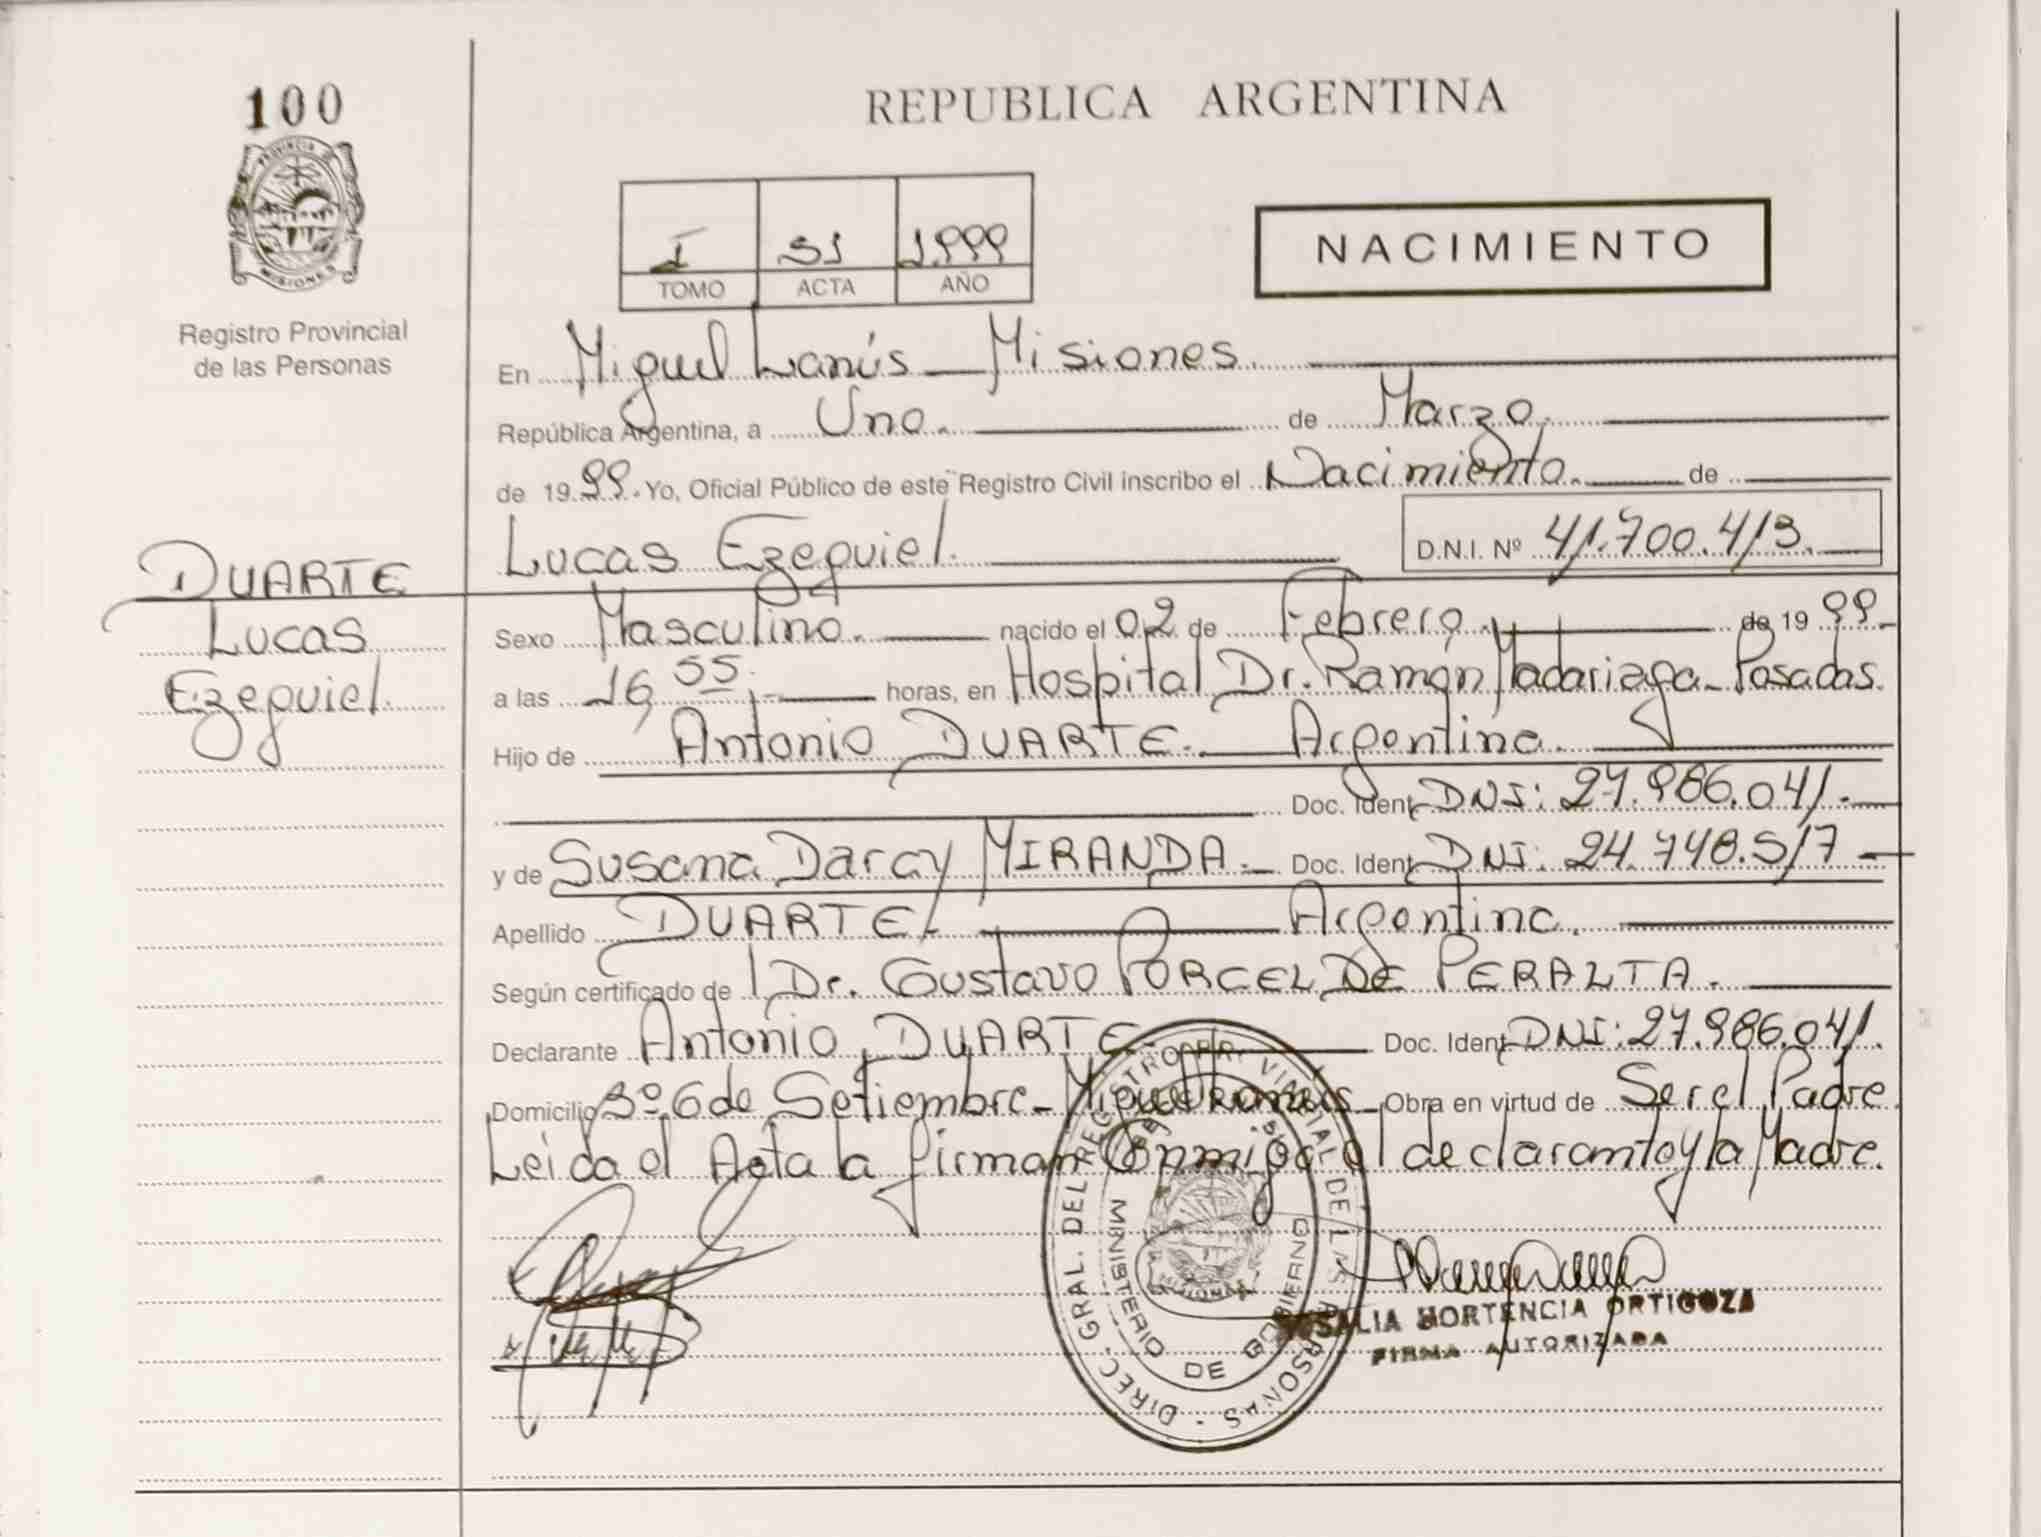 100
PROVINCIA DE
MISIONES
Registro Provincial
de las Personas
REPUBLICA ARGENTINA
I 91 1.999
TOMO ACTA AÑO
NACIMIENTO
En Miguel Lanús - Misiones.
República Argentina, a Uno. de Marzo.
de 1999. Yo, Oficial Público de este Registro Civil inscribo el Nacimiento. de
Lucas Ezequiel. D.N.I. Nº 41.700.413.
DUARTE
Lucas
Ezequiel.
Sexo Masculino. nacido el 02 de Febrero. de 1999.
a las 16,55. horas, en Hospital Dr. Ramón Madariaga - Posadas.
Hijo de Antonio DUARTE. Argentina.
Doc. Ident. DNI: 27.986.041.
y de Susana Darcy MIRANDA. Doc. Ident. DNI: 24.748.517
Apellido DUARTE. Argentina.
Según certificado de Dr. Gustavo PORCEL DE PERALTA.
Declarante Antonio DUARTE. Doc. Ident. DNI: 27.986.041.
Domicilio Bº 6 de Setiembre - Miguel Lanús - Obra en virtud de Ser el Padre
Leída el Acta la firman Conmigo el declarante y la Madre.
DIREC. GRAL. DEL REGISTRO PROVINCIAL DE LAS PERSONAS
MINISTERIO DE GOBIERNO
ROSALIA HORTENCIA ORTIGOZA
FIRMA AUTORIZADA